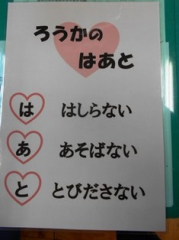 ろうかの
はあと
は はしらない
あ あそばない
と とびださない